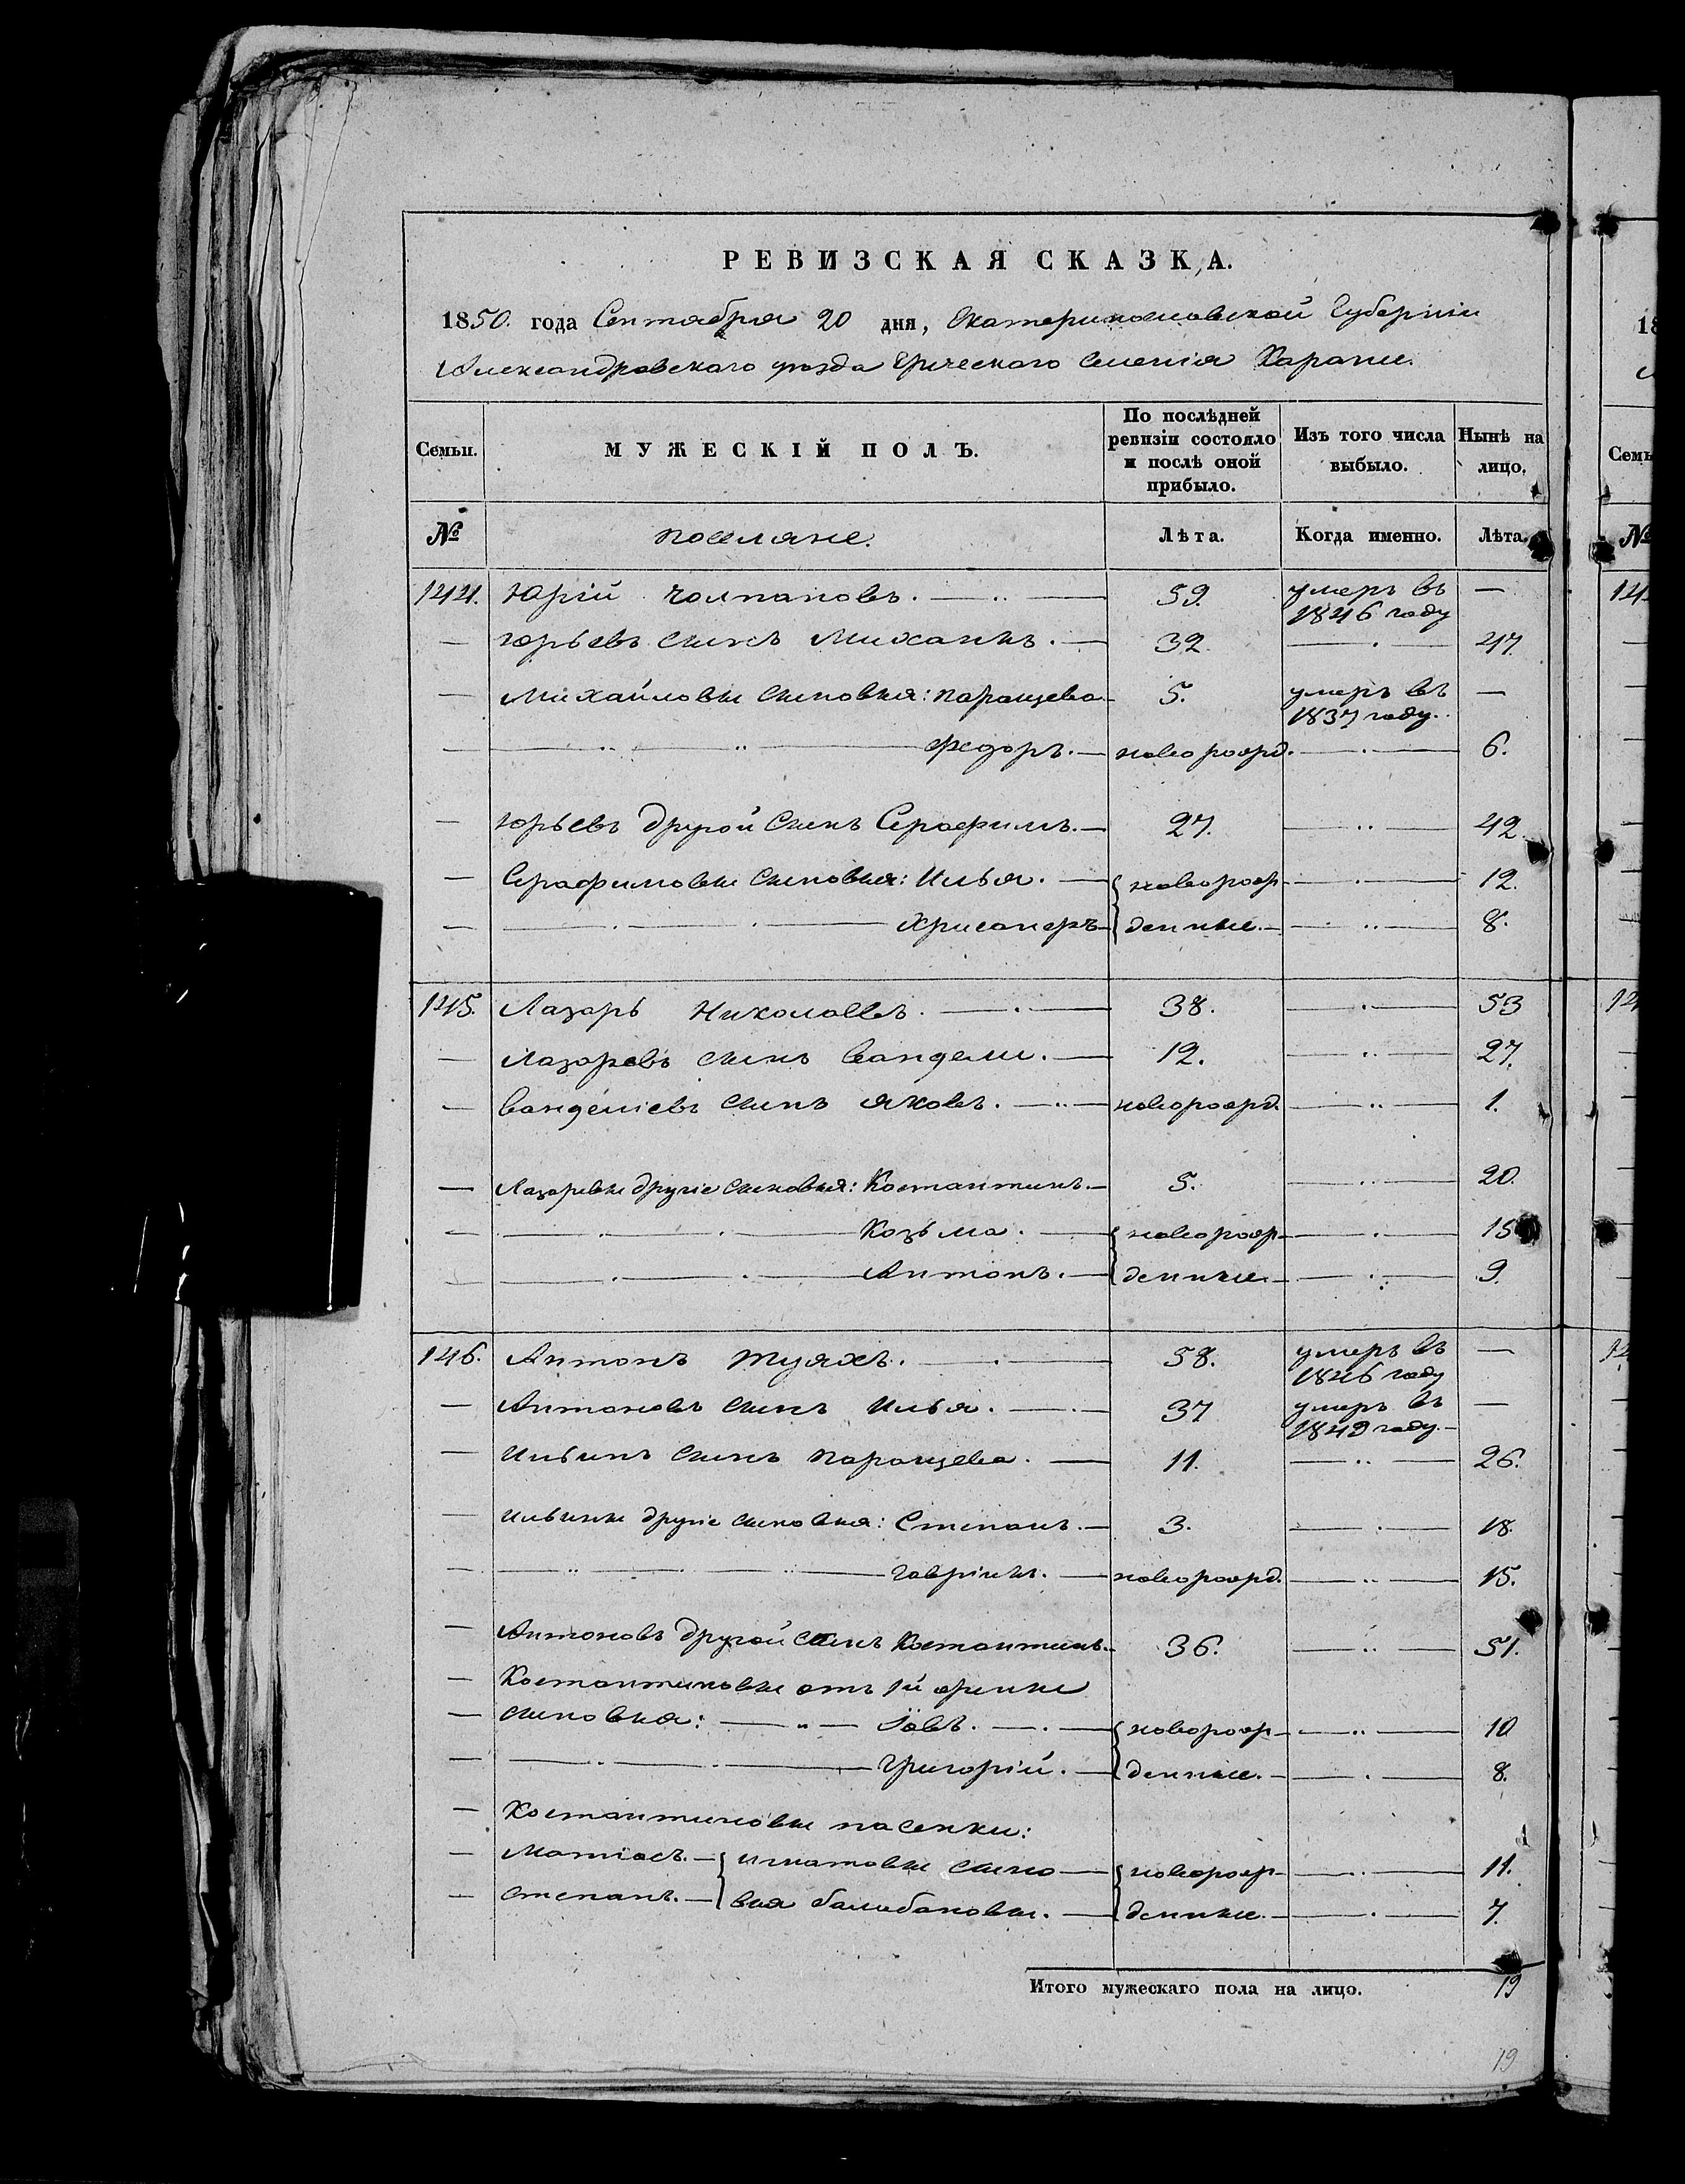 РЕВИЗСКАЯ СКАЗКА.
1850. года Сентября 20 дня, Екатеринославской Губерніи
Александровскаго уѣзда Греческаго селенія Карани.
Семьи.
МУЖЕСКІЙ ПОЛЪ.
По послѣдней ревизіи состояло и послѣ оной прибыло.
Изъ того числа выбыло.
Нынѣ на лицо.
№ поселяне. Лѣта. Когда именно. Лѣта.
144. Юрій Чолпановъ. 59. умеръ въ 1846 году —
— Юрьевъ сынъ Михаилъ. 32. — 47.
— Михайловы сыновья: Паращева 5. умеръ въ 1837 году. —
— Федоръ. новорожд. — 6.
— Юрьевъ другой сынъ Серафимъ. 27. — 42.
— Серафимовы сыновья: Илья. { новорож- — 12.
— Хрисанфъ { денные. — 8.
145. Лазарь Николаевъ. 38. — 53
— Лазаревъ сынъ Вангели. 12. — 27.
— Вангеліевъ сынъ Яковъ. новорожд. — 1.
— Лазаревы другіе сыновья: Костантинъ. 5. — 20.
— Козьма. { новорож- — 15
— Антонъ. { денные. — 9.
146. Антонъ Туяхъ. 58. умеръ въ 1846 году —
— Антоновъ сынъ Илья. 37 умеръ въ 1849 году. —
— Ильинъ сынъ Паращева. 11. — 26.
— Ильины другіе сыновья: Степанъ. 3. — 18.
— Гавріилъ. новорожд. — 15.
— Антоновъ другой сынъ Костантинъ. 36. — 51.
— Костантиновы отъ 1й жены
— сыновья: Іовъ. { новорож- — 10
— Григорій. { денные. — 8.
— Костантиновы пасенки:
— Матіасъ. { Игнатовы сыно { новорож- — 11.
— Степанъ. { вья Балабановы. { денные. — 7.
Итого мужескаго пола на лицо. 19
19